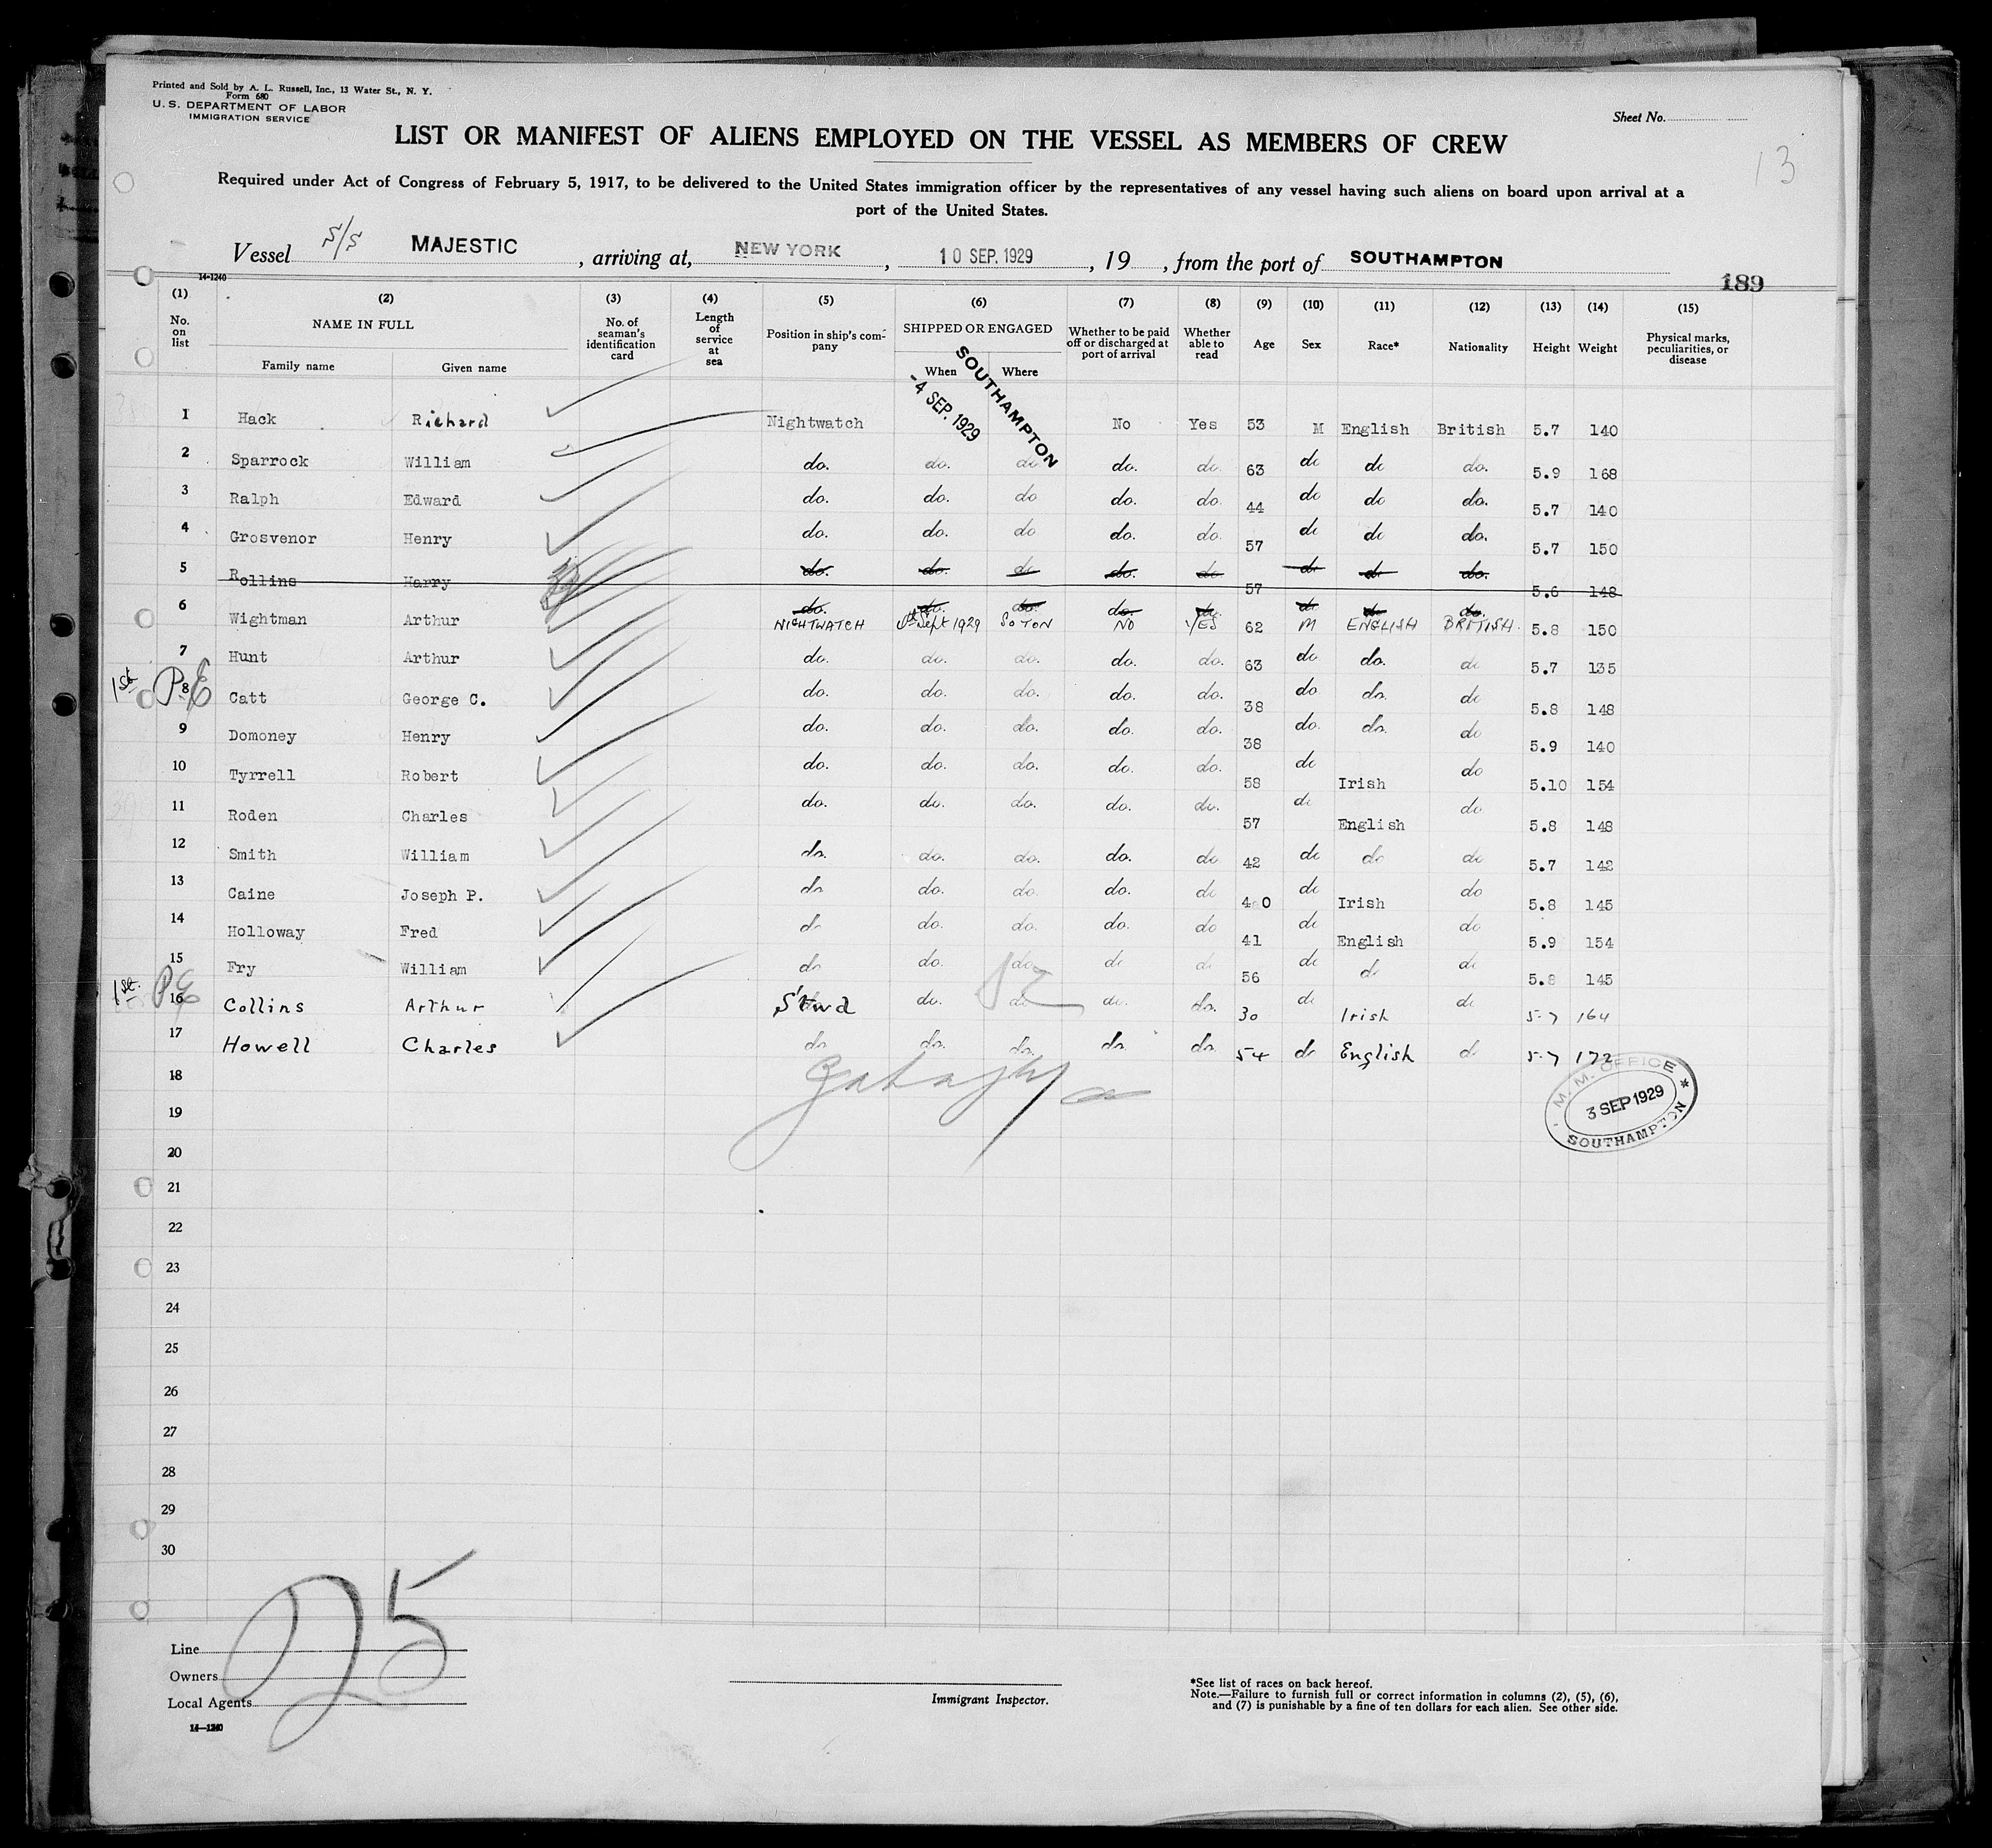 Printed and Sold by A. L. Russell, Inc., 13 Water St., N. Y.
Form 680
U. S. DEPARTMENT OF LABOR
IMMIGRATION SERVICE
Sheet No.
LIST OR MANIFEST OF ALIENS EMPLOYED ON THE VESSEL AS MEMBERS OF CREW
13
Required under Act of Congress of February 5, 1917, to be delivered to the United States immigration officer by the representatives of any vessel having such aliens on board upon arrival at a
port of the United States.
Vessel S/S MAJESTIC, arriving at, NEW YORK, 10 SEP. 1929, 19, from the port of SOUTHAMPTON
14-1240
189
(1) (2) (3) (4) (5) (6) (7) (8) (9) (10) (11) (12) (13) (14) (15)
No. on list NAME IN FULL Family name Given name No. of seaman's identification card Length of service at sea Position in ship's company SHIPPED OR ENGAGED When Where Whether to be paid off or discharged at port of arrival Whether able to read Age Sex Race* Nationality Height Weight Physical marks, peculiarities, or disease
-4 SEP. 1929 SOUTHAMPTON
1 Hack Richard Nightwatch No Yes 53 M English British 5.7 140
2 Sparrock William do. do. do do. do 63 do do do. 5.9 168
3 Ralph Edward do. do. do do. do. 44 do do do. 5.7 140
4 Grosvenor Henry do. do. do do. do. 57 do do do. 5.7 150
5 Rollins Harry do. do. do do. do 57 do do do. 5.6 148
6 Wightman Arthur do. do. do. do. do. 62 do do do. 5.8 150
NIGHTWATCH Sept 1929 SOTON NO YES M ENGLISH BRITISH
7 Hunt Arthur do. do. do. do. do. 63 do do. do 5.7 135
1st P.E
8 Catt George C. do. do. do. do. do. 38 do do. do 5.8 148
9 Domoney Henry do. do. do. do. do. 38 do. do. do 5.9 140
10 Tyrrell Robert do. do. do. do. do. 58 do Irish do 5.10 154
11 Roden Charles do. do. do. do. do. 57 do English do 5.8 148
12 Smith William do. do. do. do. do 42 do do do 5.7 142
13 Caine Joseph P. do do. do. do. do 40 do Irish do 5.8 145
14 Holloway Fred do do. do. do. do 41 do English do 5.9 154
15 Fry William do do. do. do do 56 do do do 5.8 145
1st. P.E
16 Collins Arthur S'twd do. do. do. do. 30 do Irish do 5.7 164
17 Howell Charles do do. do. do. do. 54 do English do 5.7 172
18
19
20
21
22
23
24
25
26
27
28
29
30
M. M. OFFICE
3 SEP 1929
SOUTHAMPTON
25
Line
Owners
Local Agents
14-1240
Immigrant Inspector.
*See list of races on back hereof.
Note.—Failure to furnish full or correct information in columns (2), (5), (6),
and (7) is punishable by a fine of ten dollars for each alien. See other side.